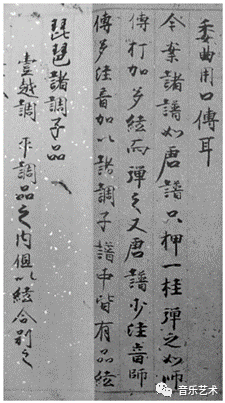 委曲用口傳耳
今案諸譜如唐譜只押一柱彈之如師
傳打加多絃而彈之又唐譜少注音師
傳多注音加以諸調子譜中皆有品絃
琵琶諸調子品
壹越調 平調品之內但以絃合別之
音乐艺术